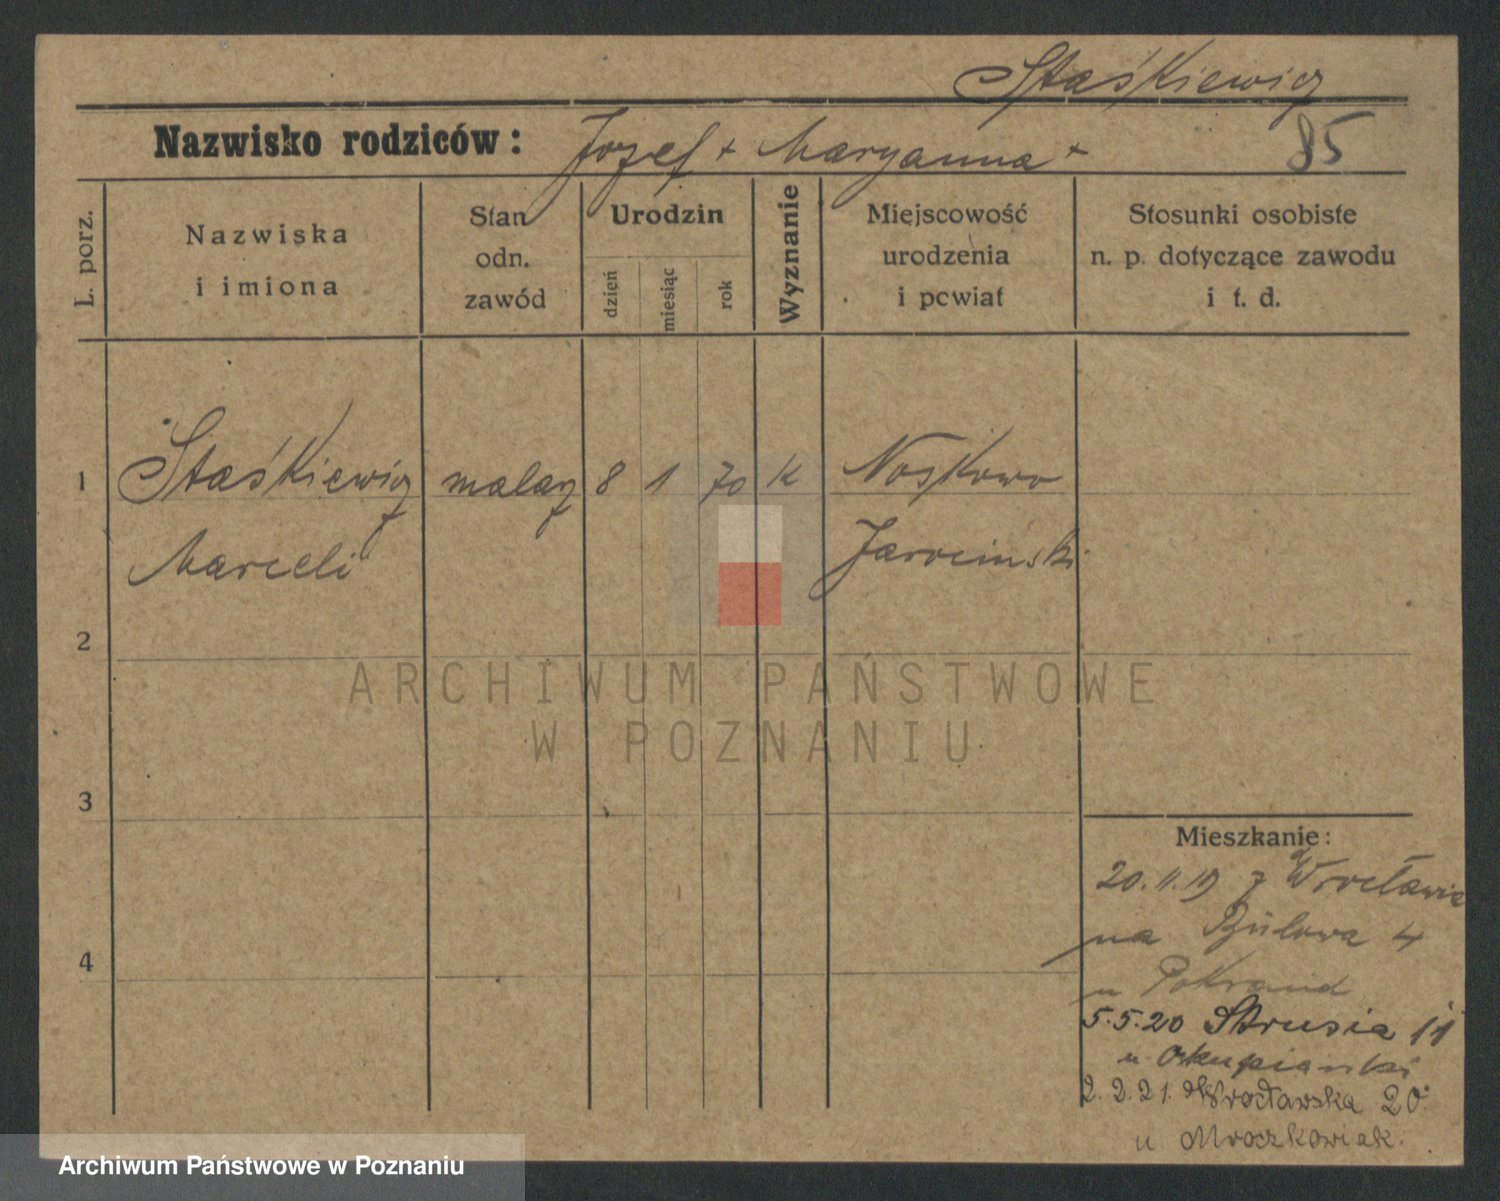 Staśkiewicz
Nazwisko rodziców: Józef + Maryanna +
85
L. porz.
Nazwiska
i imiona
Stan
odn.
zawód
Urodzin
dzień
miesiąc
rok
Wyznanie
Miejscowość
urodzenia
i powiat
Stosunki osobiste
n. p. dotyczące zawodu
i t. d.
1 Staśkiewicz malarz 8 1 70 K Noskowo
Marceli Jarociński
2
3
4
ARCHIWUM PAŃSTWOWE
W POZNANIU
Mieszkanie:
20.11.19 z Wrocławia
na Bülowa 4
u Pokrand
5.5.20 Strusia 11
u
2.2.21. Wrocławska 20.
u Mroczkowiak.
Archiwum Państwowe w Poznaniu